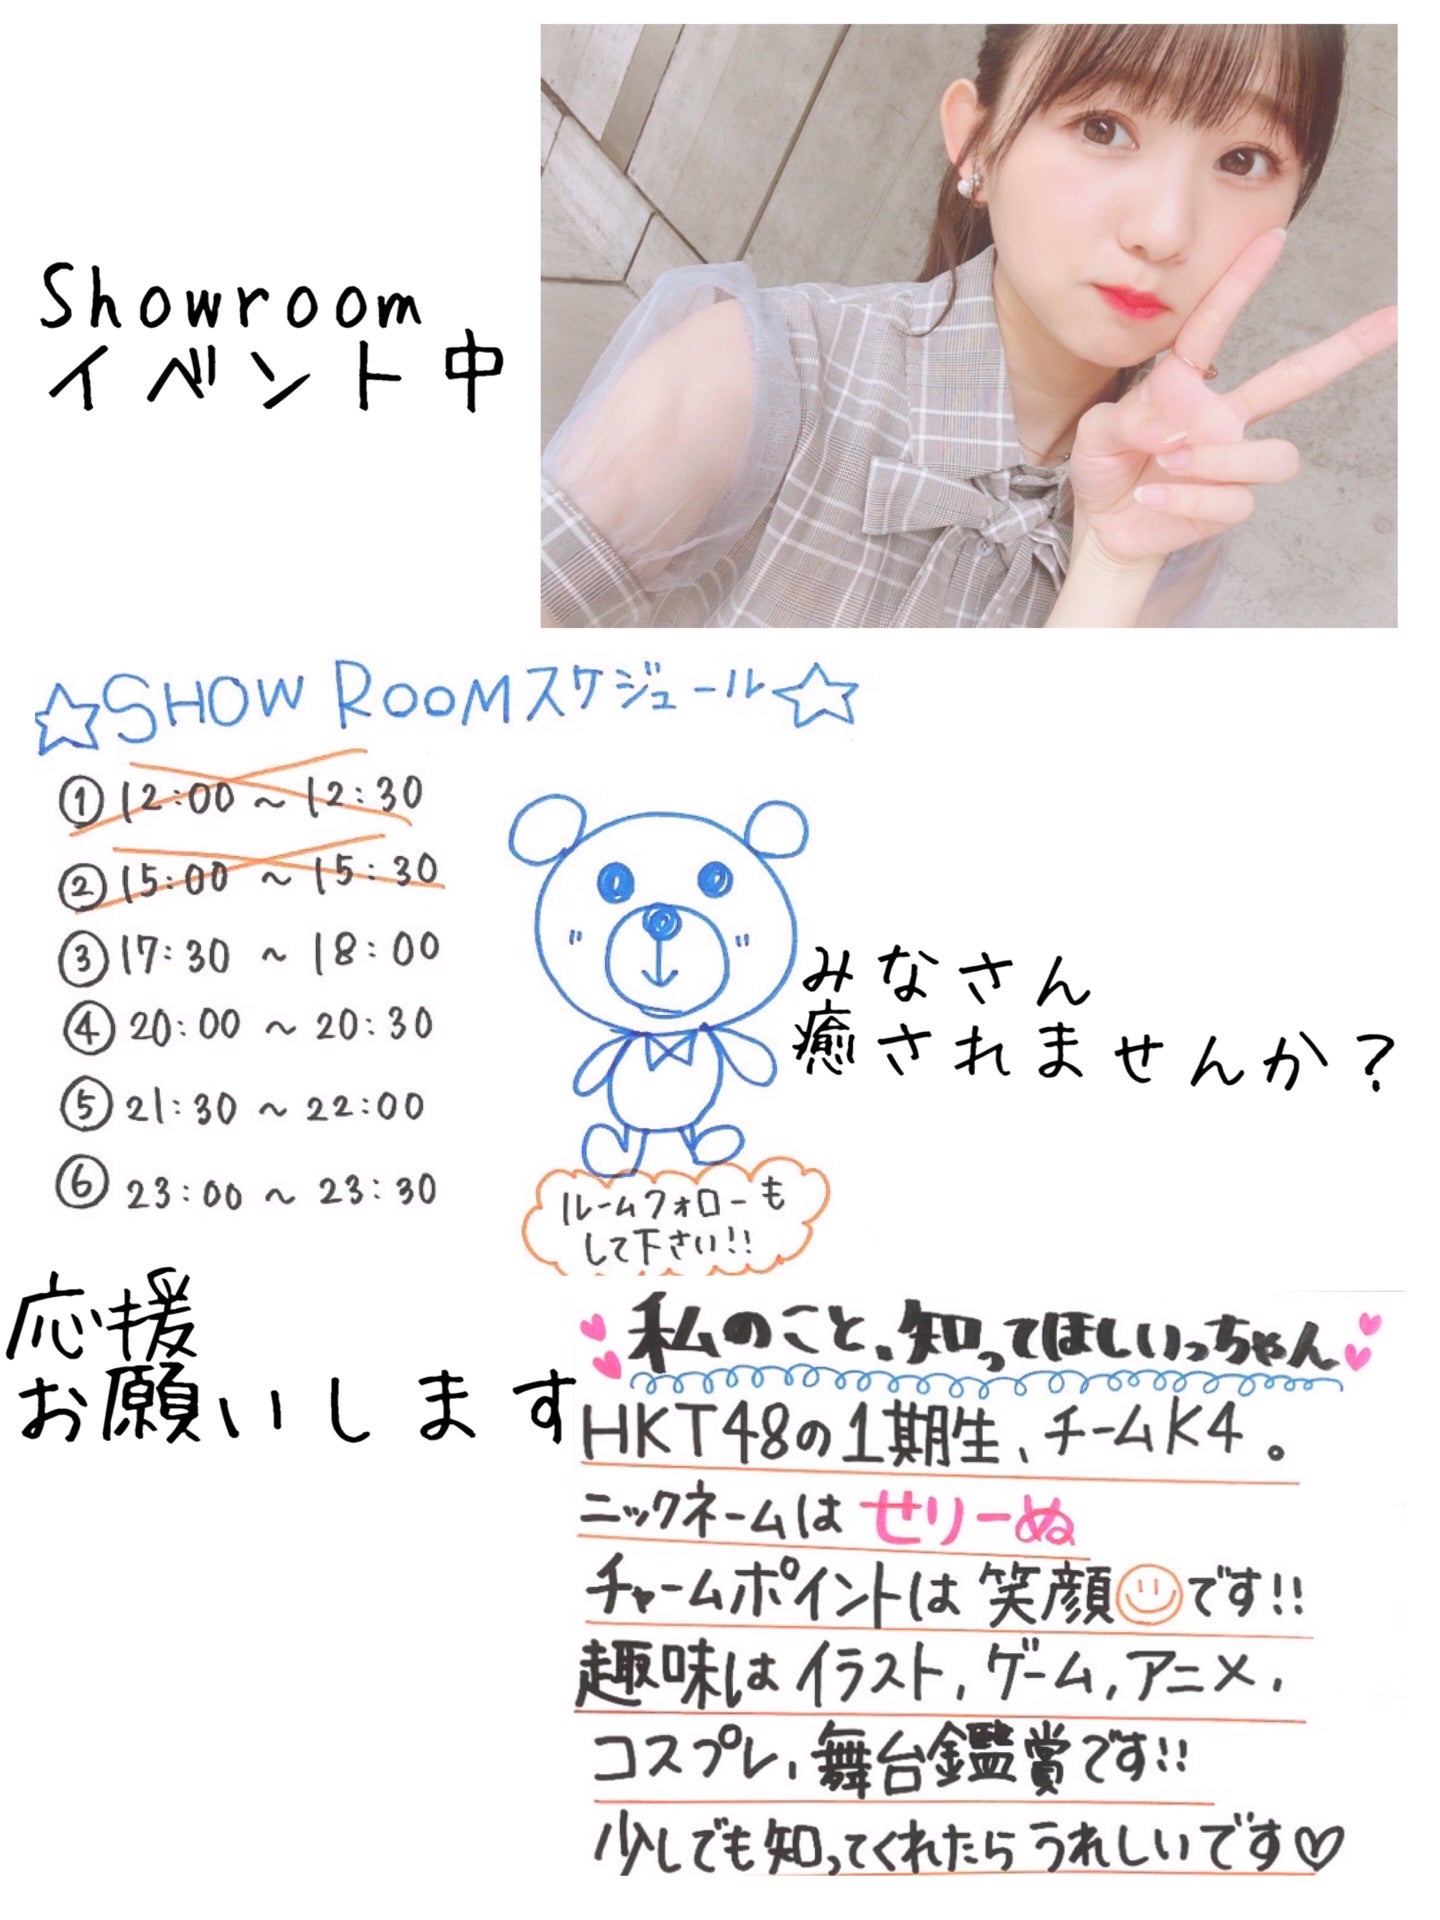 Showroom
イベント中
☆SHOW ROOMスケジュール☆
①12:00~12:30
②15:00~15:30
③17:30~18:00
④20:00~20:30
⑤21:30~22:00
⑥23:00~23:30
みなさん
癒されませんか?
ルームフォローも
して下さい!!
応援
お願いします
私のこと、知ってほしいっちゃん
HKT48の1期生、チームK4。
ニックネームは せりーぬ
チャームポイントは 笑顔です!!
趣味は イラスト,ゲーム,アニメ,
コスプレ,舞台鑑賞です!!
少しでも知ってくれたら うれしいです♡